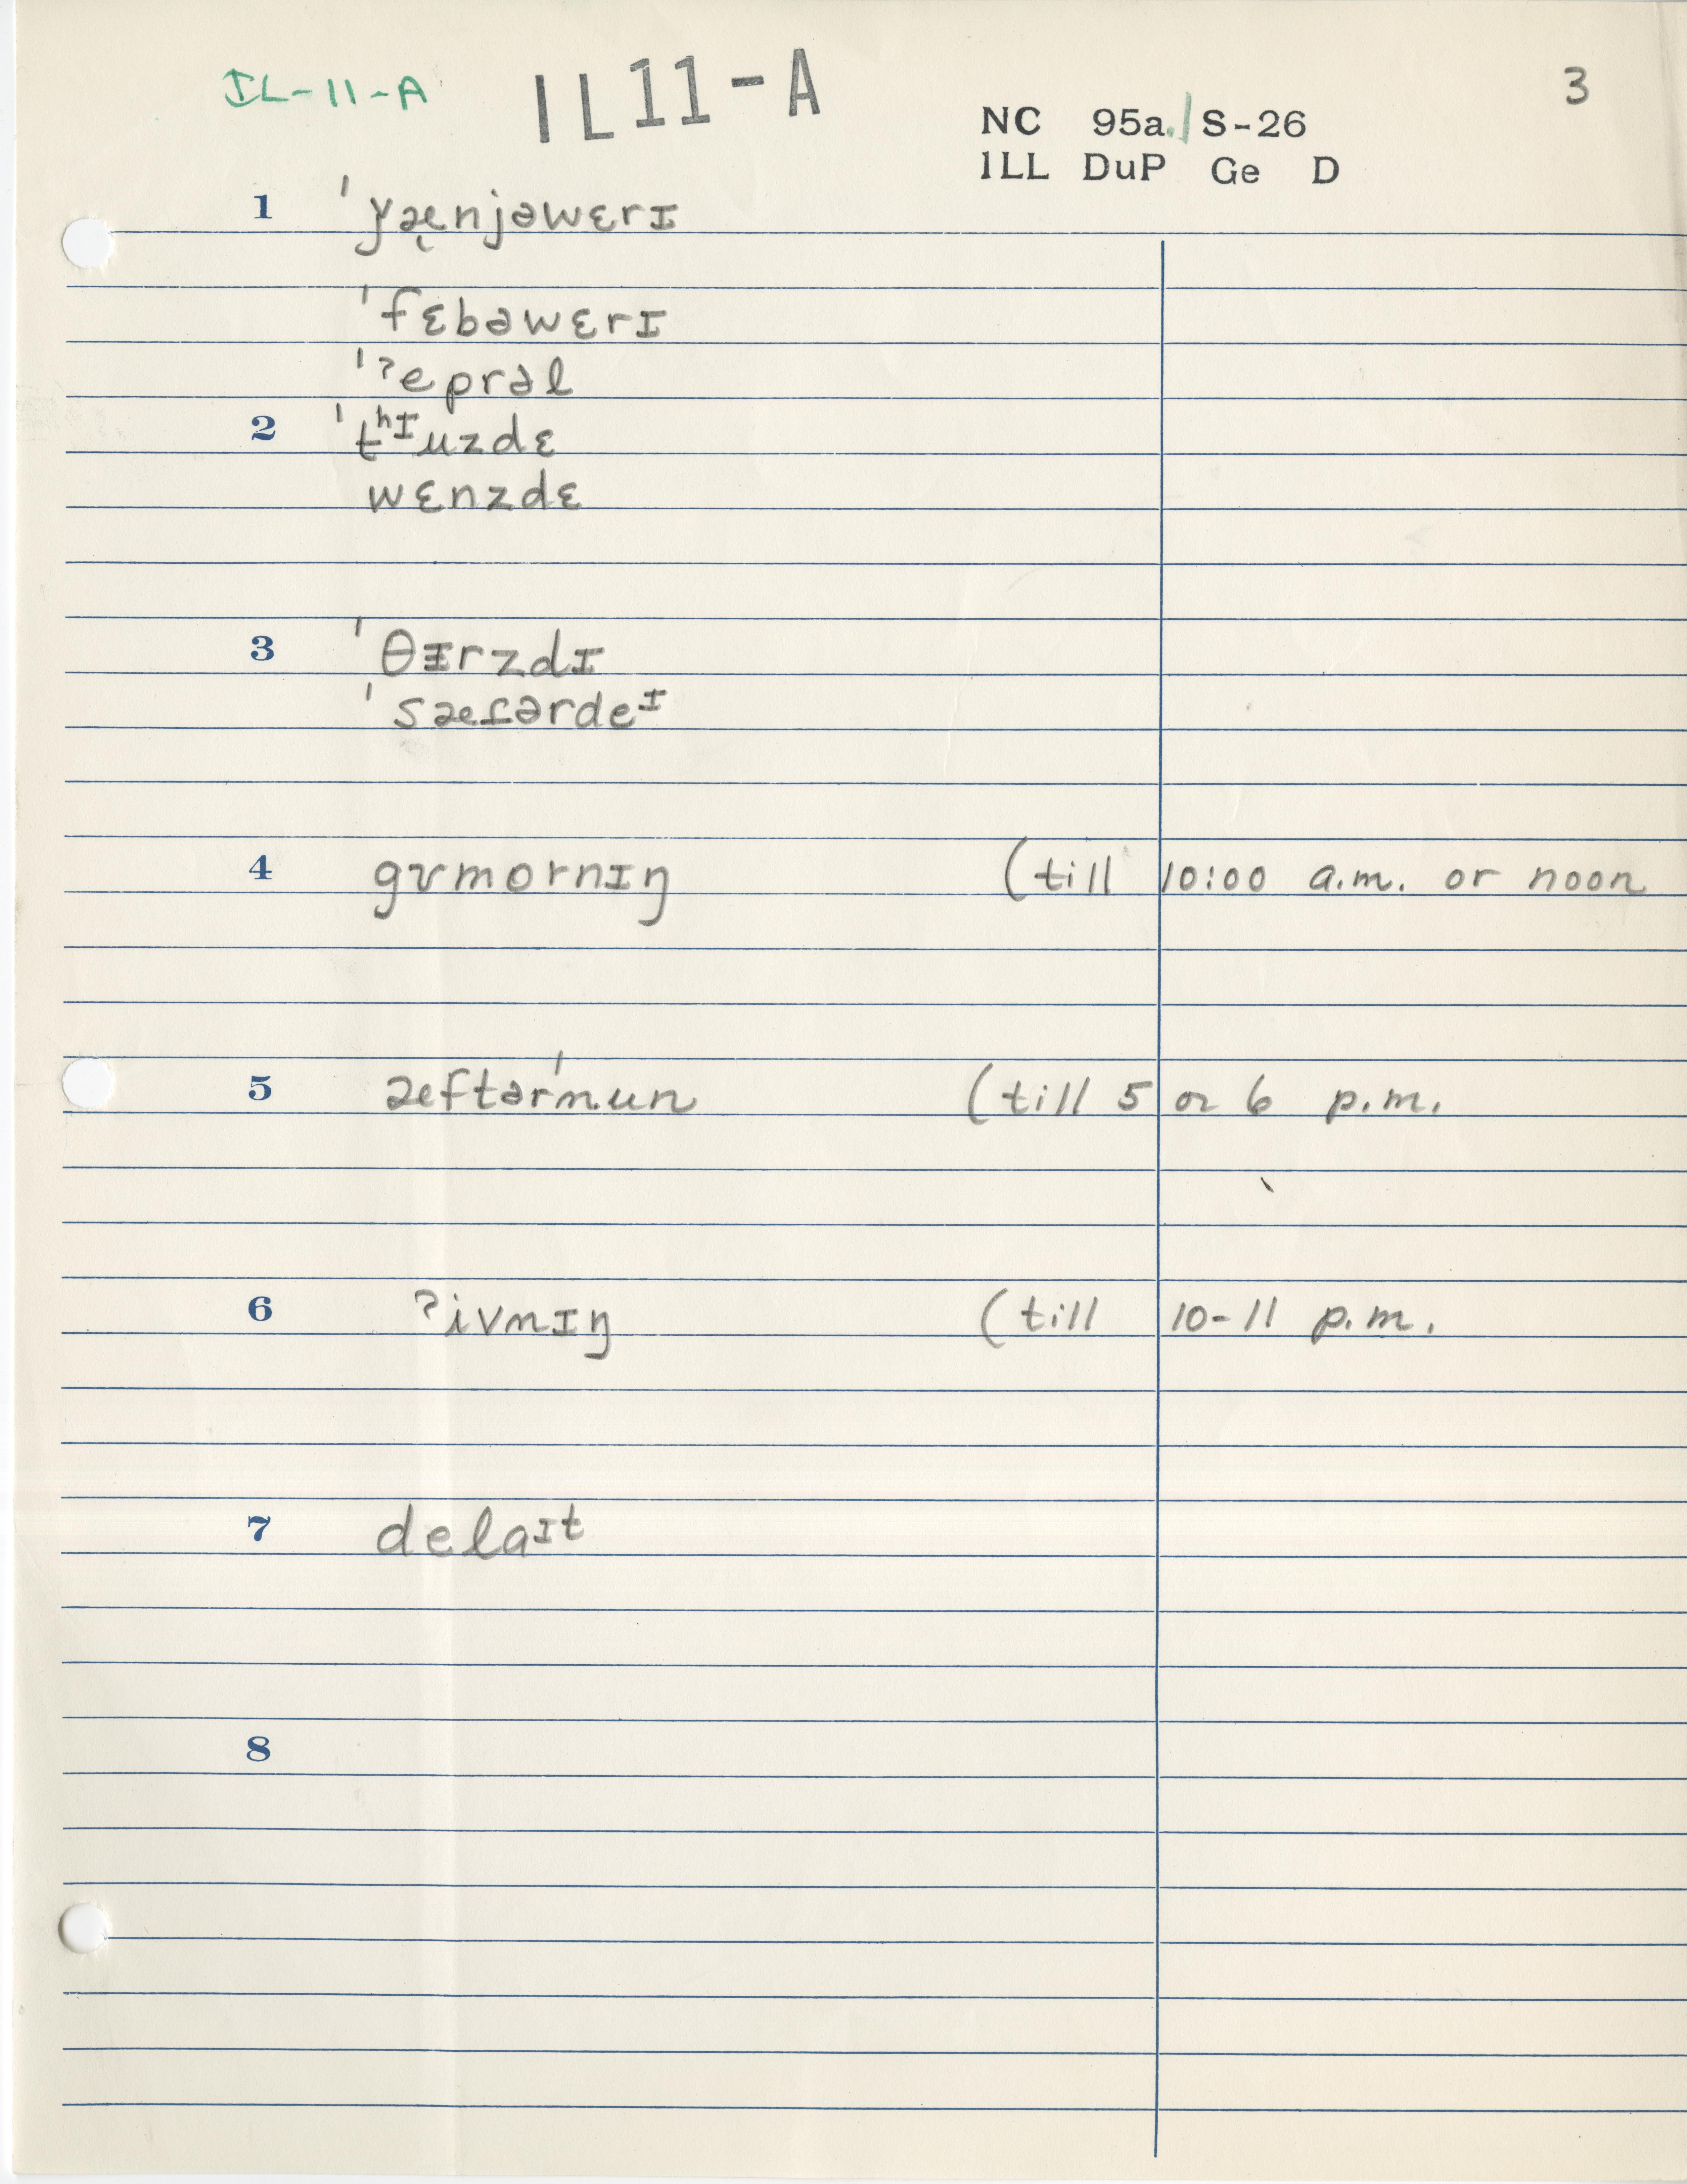 IL-11-A IL11-A 3
NC 95a. S-26
ILL DuP Ge D
1 'ɉæ̨njəwɛrɪ
'fɛbəwɛrɪ
'ˀeprəl
2 'tʰᶦuzdɛ
wɛnzdɛ
3 'θɪrzdɪ
'sæɾərdeᶦ
4 gʊmornɪŋ (till 10:00 a.m. or noon
5 æftər'nun (till 5 or 6 p.m.
6 ˀivnɪŋ (till 10-11 p.m.
7 delaᶦt
8